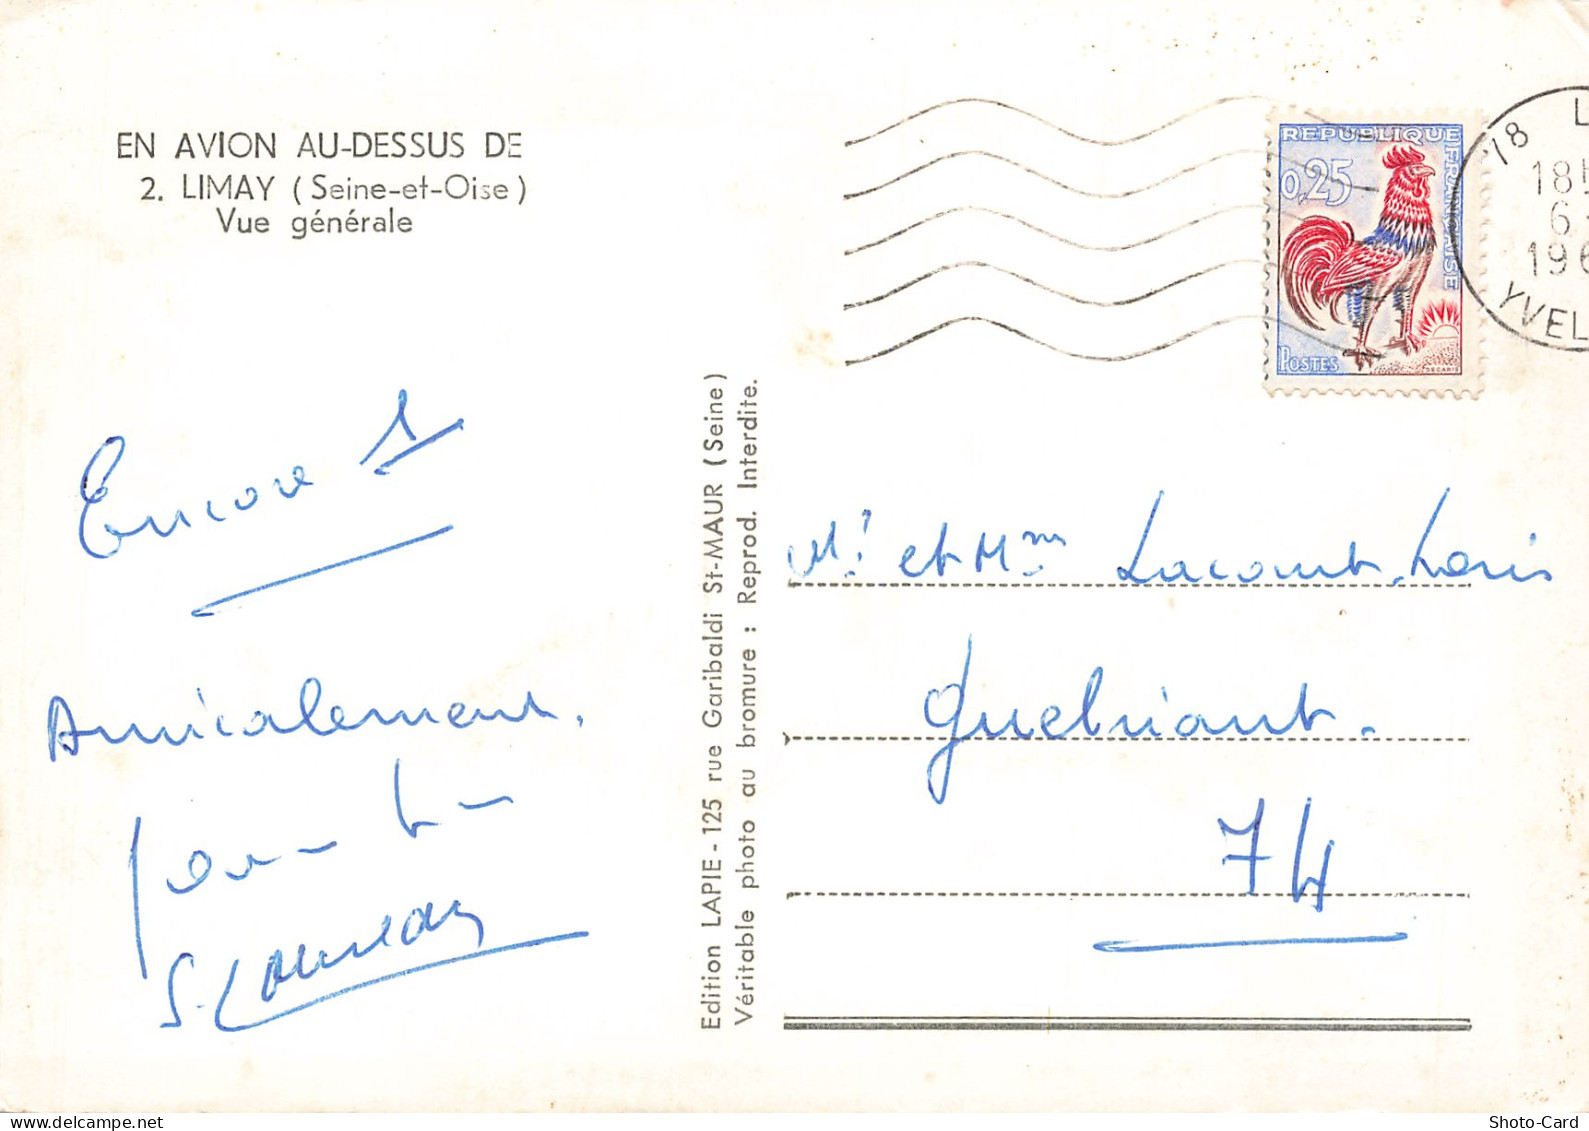 EN AVION AU-DESSUS DE
2. LIMAY (Seine-et-Oise)
Vue générale
Encore 1
Amicalement.
Edition LAPIE - 125 rue Garibaldi St-MAUR (Seine)
Véritable photo au bromure : Reprod. Interdite.
REPUBLIQUE FRANCAISE
0,25
POSTES
DECARIS
78 L
18H
6
196
YVEL
Mr et Mme Lacombe Louis
Guebriant.
74
Shoto-Card